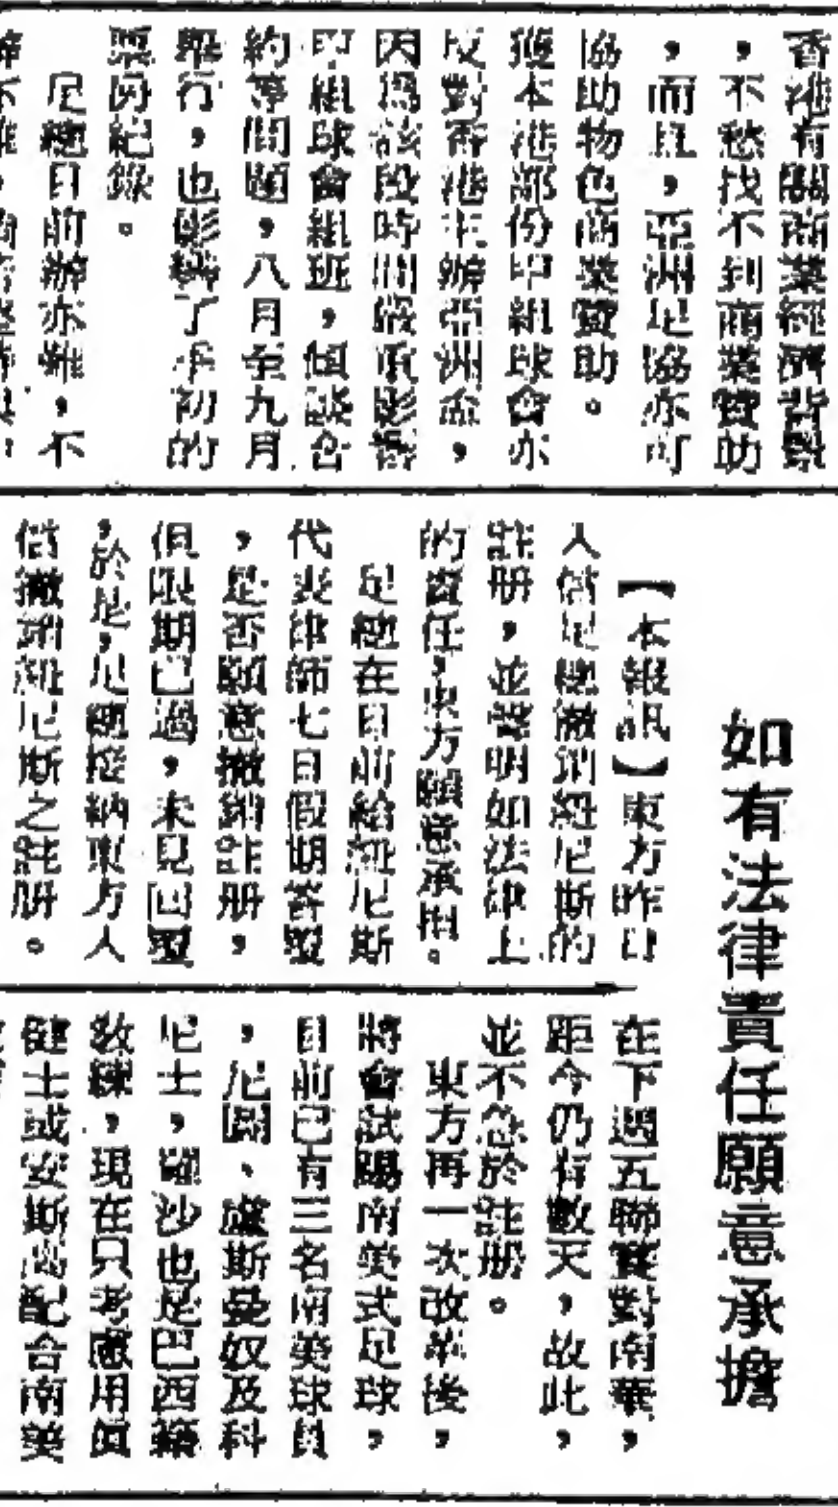 香港有關商業經濟背景
，不愁找不到商業贊助
，而且，亞洲足協亦可
協助物色商業贊助。
獲本港部份甲組球會亦
反對香港主辦亞洲盃，
因為該段時間嚴重影響
甲組球會組班，傾談合
約等問題，八月至九月
舉行，也影響了季初的
票房紀錄。
足總目前辦亦難，不
如有法律責任願意承擔
【本報訊】東方昨日
入信足總撤銷紐尼斯的
註册，並聲明如法律上
的責任，東方願意承担。
足總在目前給紐尼斯
代表律師七日假期答覆
，是否願意撤銷註册，
但限期已過，未見回覆
，於是，足總接納東方人
信撤銷紐尼斯之註册。
在下週五聯賽對南華，
距今仍有數天，故此，
並不急於註册。
東方再一次改革後，
將會試踢南美式足球，
目前已有三名南美球員
，尼關、盧斯曼奴及科
尼士，羅沙也是巴西籍
教練，現在只考慮用眞
健士或安斯 配合南美